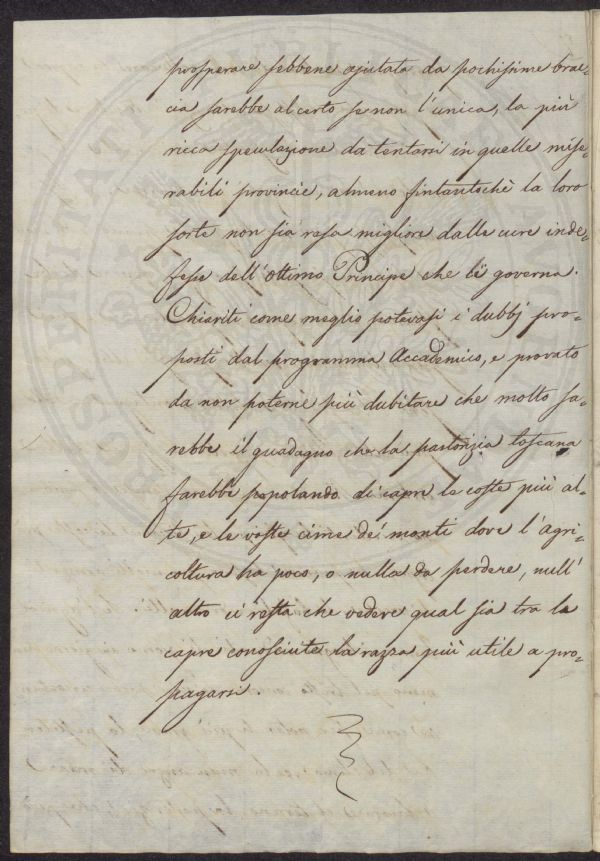 prosperare sebbene ajutata da pochissime brac=
cia sarebbe al certo se non l'unica, la più
ricca speculazione da tentarsi in quelle mise=
rabili provincie, almeno fintantochè la loro
sorte non sia resa migliore dalle cure inde=
fesse dell'ottimo Principe che li governa.
Chiariti come meglio potevasi i dubbj pro=
posti dal programma Accademico, e provato
da non poterne più dubitare che molto sa=
rebbe il guadagno che la pastorizia toscana
farebbe popolando di capre le coste più al=
te, e le vaste cime de' monti dove l'agri=
coltura ha poco, o nulla da perdere, null'
altro ci resta che vedere qual sia tra le
capre conosciute la razza più utile a pro=
pagarsi.